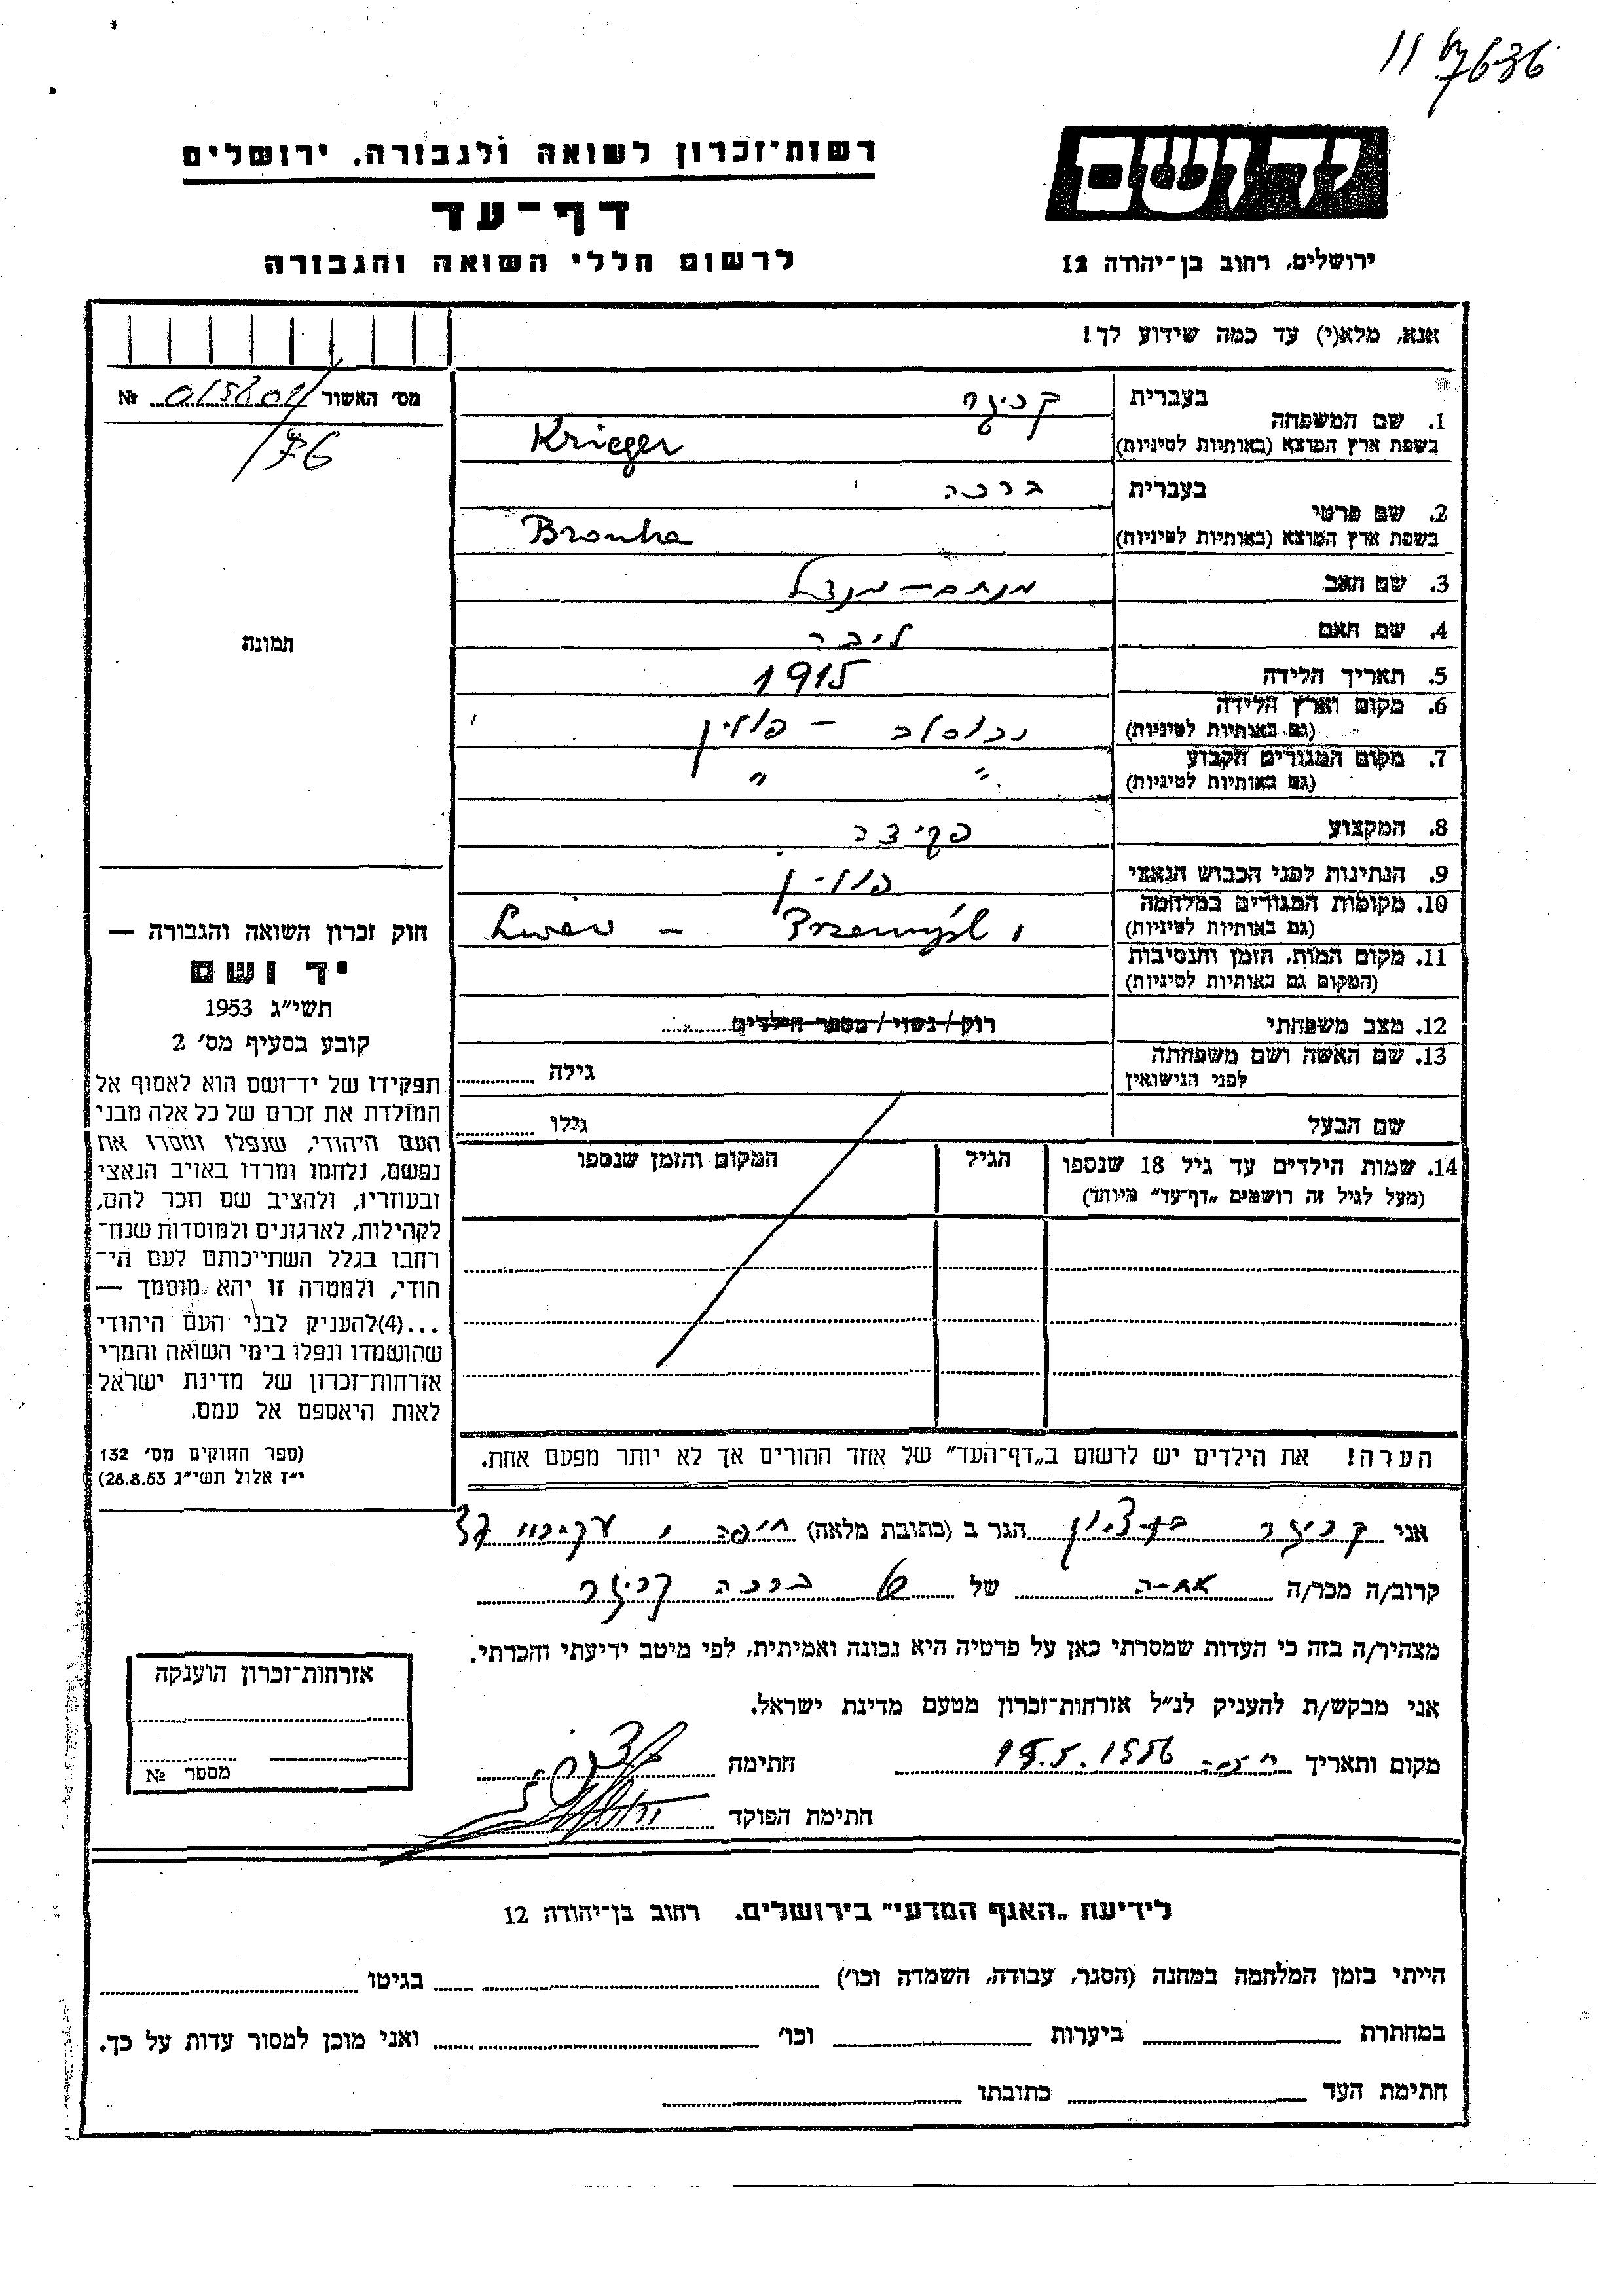 11 7636
יד ושם
ירושלים, רחוב בן-יהודה 12
רשות-זכרון לשואה ולגבורה, ירושלים
דף-עד
לרשום חללי השואה והגבורה
אנא, מלא(י) עד כמה שידוע לך!
מס׳ האשור № 015801/
/76
תמונה
1. שם המשפחה בעברית קריגר
בשפת ארץ המוצא (באותיות לטיניות) Krieger
2. שם פרטי בעברית ברכה
בשפת ארץ המוצא (באותיות לטיניות) Bronka
3. שם האב מנחם – מנדל
4. שם האם ליבה
5. תאריך הלידה 1915
6. מקום וארץ הלידה
(גם באותיות לטיניות) – פולין
7. מקום המגורים הקבוע
(גם באותיות לטיניות) " "
8. המקצוע פקידה
9. הנתינות לפני הכבוש הנאצי פולין
10. מקומות המגורים במלחמה
(גם באותיות לטיניות) Przemyśl – Lwów
11. מקום המות, הזמן והנסיבות
(המקום גם באותיות לטיניות)
12. מצב משפחתי רוק / נשוי / מספר הילדים
13. שם האשה ושם משפחתה
לפני הנישואין גילה
שם הבעל גילו
14. שמות הילדים עד גיל 18 שנספו הגיל המקום והזמן שנספו
(מעל לגיל זה רושמים „דף-עד” מיוחד)
הערה! את הילדים יש לרשום ב„דף-העד” של אחד ההורים אך לא יותר מפעם אחת.
חוק זכרון השואה והגבורה —
יד ושם
תשי״ג 1953
קובע בסעיף מס׳ 2
תפקידו של יד-ושם הוא לאסוף אל
המולדת את זכרם של כל אלה מבני
העם היהודי, שנפלו ומסרו את
נפשם, נלחמו ומרדו באויב הנאצי
ובעוזריו, ולהציב שם וזכר להם,
לקהילות, לארגונים ולמוסדות שנח־
רבו בגלל השתייכותם לעם הי־
הודי, ולמטרה זו יהא מוסמך —
...(4)להעניק לבני העם היהודי
שהושמדו ונפלו בימי השואה והמרי
אזרחות-זכרון של מדינת ישראל
לאות היאספם אל עמם.
(ספר החוקים מס׳ 132
י״ז אלול תשי״ג 28.8.53)
אני קריגר בן-ציון הגר ב (כתובת מלאה) חיפה,
קרוב/ה מכר/ה של ברכה קריגר
מצהיר/ה בזה כי העדות שמסרתי כאן על פרטיה היא נכונה ואמיתית, לפי מיטב ידיעתי והכרתי.
אני מבקש/ת להעניק לנ״ל אזרחות-זכרון מטעם מדינת ישראל.
מקום ותאריך חיפה 15.5.1956 חתימה
חתימת הפוקד
אזרחות-זכרון הוענקה
מספר №
לידיעת „האגף המדעי” בירושלים. רחוב בן-יהודה 12
הייתי בזמן המלחמה במחנה (הסגר, עבודה, השמדה וכו׳) בגיטו
במחתרת ביערות וכו׳ ואני מוכן למסור עדות על כך.
חתימת העד כתובתו